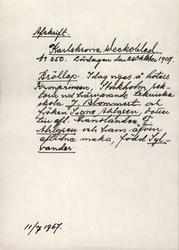 Afskrift.
Karlskrona Weckoblad
№ 250. Lördagen den 26 Oktober 1907.
Bröllop. I dag vigas å hotell
Kronprinsen, Stockholm, rek-
torn vid härvarande tekniska
skola J. Blommert och
fröken Ahlgren, dotter
till afl.
Ahlgren och hans äfven
aflidna maka, född Syl-
vander.
11/7 1967.